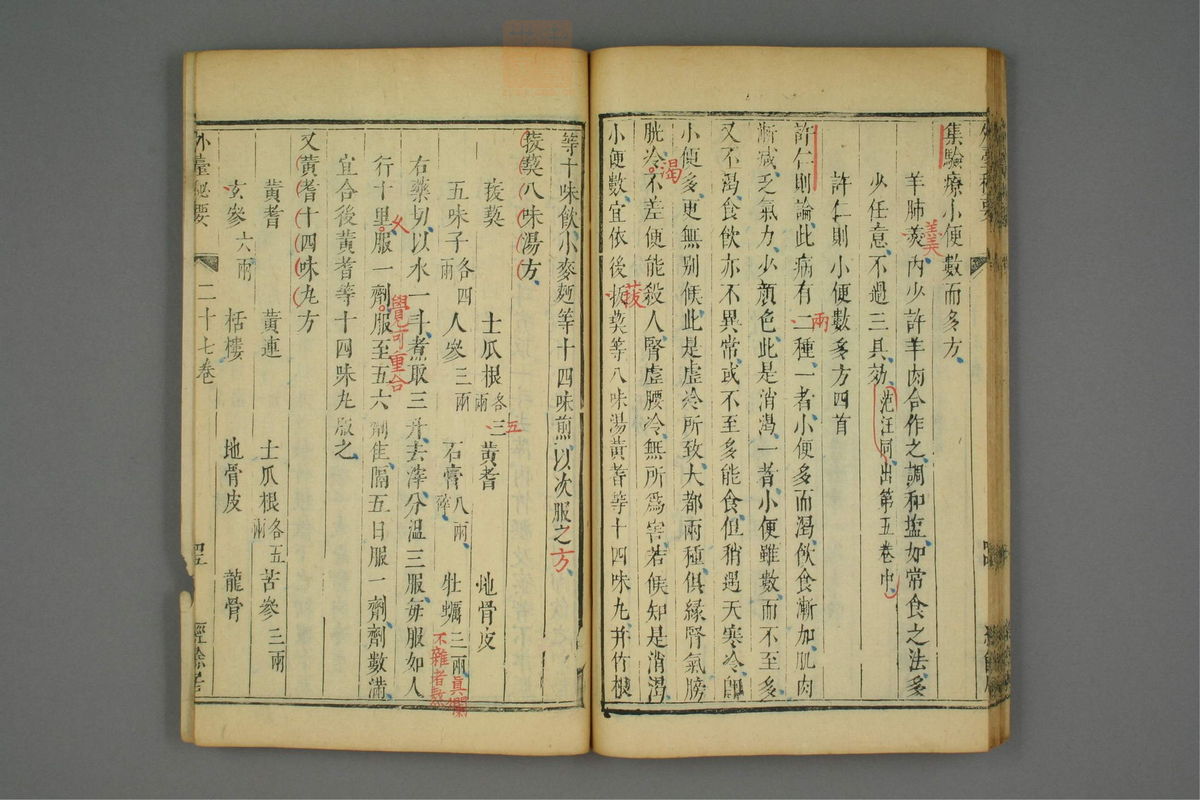 集驗療小便數而多方
羊肺羹內少許羊肉合作之調和鹽如常食之法多
羹
少任意不過三具効范汪同出第五卷中
許仁則小便數多方四首
許仁則論此病有二種一者小便多而渴飲食漸加肌肉
兩
漸減乏氣力少顏色此是消渴一者小便雖數而不至多
又不渴食飲亦不異常或不至多能食但稍遇天寒冷即
小便多更無別候此是虛冷所致大都兩種俱緣腎氣膀
胱冷不差便能殺人腎虛腰冷無所為害若候知是消渴
渴
小便數宜依後菝葜等八味湯黃耆等十四味丸并竹根
菝
等十味飲小麥麯等十四味煎以次服之方
菝葜八味湯方
菝葜 土瓜根各三兩 黃耆 地骨皮
五
五味子各四兩 人參三兩 石膏八兩碎 牡蠣三兩
右藥切以水一斗煮取三升去滓分溫三服每服如人
行十里服一劑服至五六劑佳隔五日服一劑劑數滿
又
覺可重合
宜合後黃耆等十四味丸服之
又黃耆十四味丸方
黃耆 黃連 土瓜根各五兩 苦參三兩
玄參六兩 栝樓 地骨皮 龍骨
外臺秘要 二十七卷